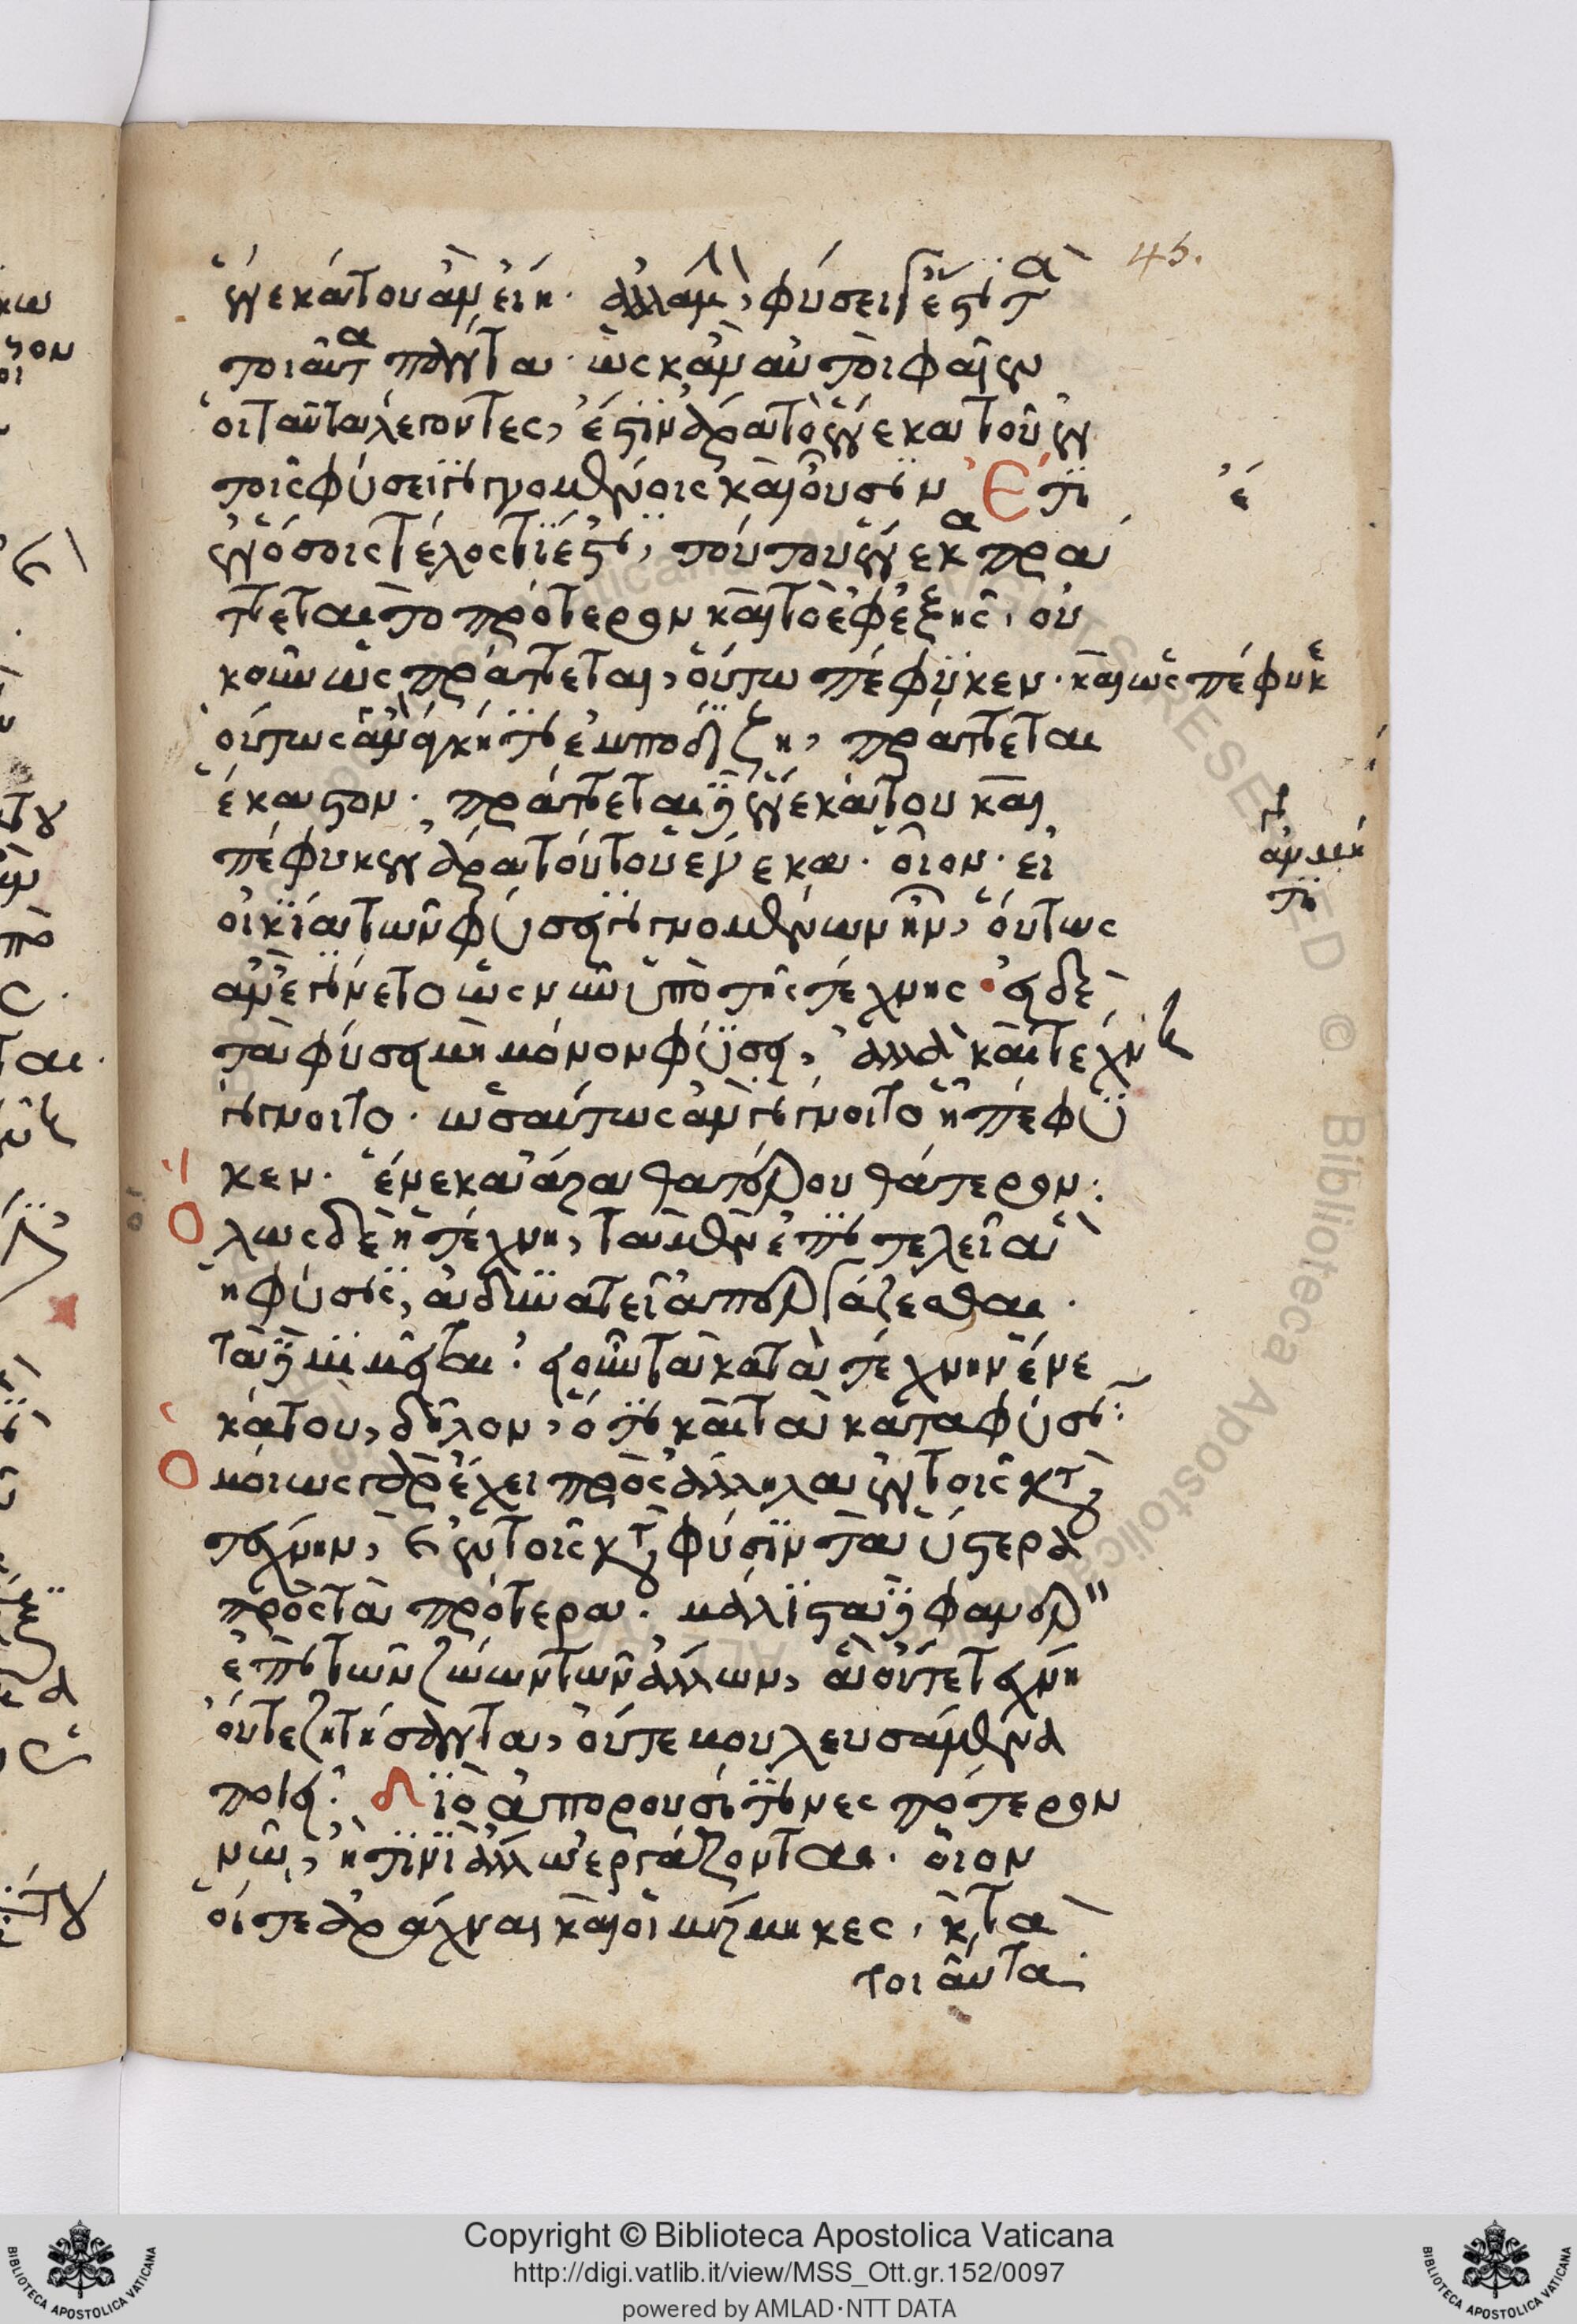 45.
ἕνεκά του ἂν εἴη. ἀλλὰ μὴν φύσει γ' ἐστὶ τὰ
τοιαῦτα πάντα. ὡς κἂν αὐτοὶ φαῖεν
οἱ ταῦτα λέγοντες, ἔστιν ἄρα τὸ ἕνεκα του ἐν
τοῖς φύσει γιγνομένοις καὶ οὖσιν Ἔτι
ἐν ὅσοις τέλος τὶ ἔστι, τούτου ἕνεκα πρά
ττεται τὸ πρότερον καὶ τὸ ἐφεξῆς, οὐ
κοῦν ὡς πράττεται, οὕτω πέφυκεν. καὶ ὡς πέφυκε
οὕτως ἂν μή τι ἐμποδίζη, πράττεται
ἕκαστον. πράττεται δ' ἕνεκά του καὶ
πέφυκεν ἄρα τούτου ἕνεκα. οἷον. εἰ
οἰκία τῶν φύσει γιγνομένων ἦν, οὕτως
ἂν ἐγίνετο ὡς νῦν ὑπὸ τῆς τέχνης. εἰ δὲ
τὰ φύσει μὴ μόνον φύσει, ἀλλὰ καὶ τέχνη
γίγνοιτο. ὡσαύτως ἂν γίγνοιτο ἧ πέφυ
κεν. ἕνεκα ἄρα θατέρου θάτερον:
Ὅλως δὲ ἡ τέχνη, τὰ μὲν ἐπιτελεῖ ἃ
ἡ φύσις, ἀδυνατεῖ ἀπεργάζεσθαι.
τὰ δὲ μιμεῖται. εἰ οὖν τὰ κατὰ τέχνην ἕνε
κά του, δῆλον, ὅτι καὶ τὰ κατὰ φύσιν:
Ὁμοίως γὰρ ἔχει πρὸς ἄλληλα ἐν τοῖς κατὰ
τέχνην, καὶ ἐν τοῖς κατὰ φύσιν τὰ ὕστερα
πρὸς τὰ πρότερα. μάλιστα δὲ φανερὸν
ἐπὶ τῶν ζώων τῶν ἄλλων, ἃ οὔτε τέχνη
οὔτε ζητήσαντα, οὔτε βουλευσάμενα
ποιεῖ. Διὸ ἀποροῦσί τινες πότερον
νῷ, ἤ τινι ἄλλω ἐργάζονται. οἷον
οἵ τε ἀράχναι καὶ οἱ μύρμηκες, καὶ τὰ
τοιαῦτα
Copyright © Biblioteca Apostolica Vaticana
http://digi.vatlib.it/view/MSS_Ott.gr.152/0097
powered by AMLAD·NTT DATA